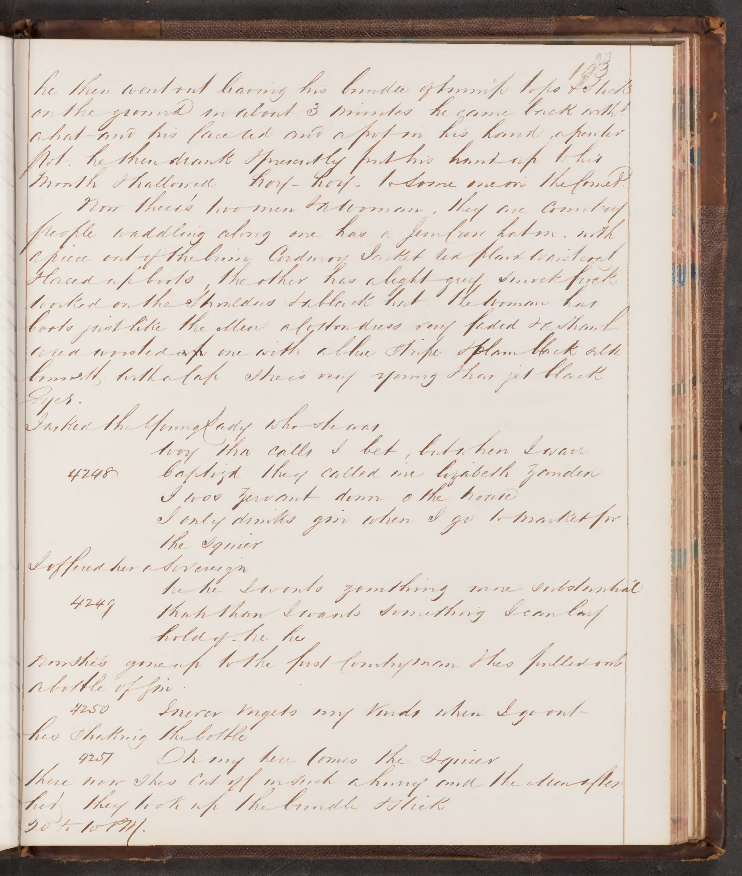 193
he then went out leaving his bundle of turnip tops & stick
on the ground in about 3 minutes he came back with
a hat and his face red and a pot in his hand a pewter
Pot. he then drank & presently put his hand up to his
Mouth & hallowed hoy - hoy - to some one in the
Now there's two men & a woman, they are country
people waddling along one has a Jem Crow hat on. with
a piece out of the brim Corduroy Jacket red plaid waistcoat
& laced up boots, the other has a light grey smock frock
worked on the Shoulders & a black hat the Woman has
boots just like the Men a cotton dress very faded & a Shawl
worsted one with a blue Stripe & plain black silk
bonnett, with a Cap she is very young & has jet black
Eyes.
I asked the Young Lady who she was
Woy tha calls I bet, but when I was
4248 baptizd they called me lizabeth Zanden
I wos Zervant down o the house
I only drinks gin when I go to market for
the Squier
I offered her a Sovereign
he he I wants zomthing more substantial
4249 thah than I wants something I can lay
hold of he he
Now she's gone up to the first Countryman & hes pulled out
a bottle of Gin.
4250 I never vorgets my vonds when I go out
hes shaking the bottle
4251 Oh my here comes the Squier
there now shes cut off in such a hurry and the Men after
her, they took up the bundle & stick
20 to 10 PM.